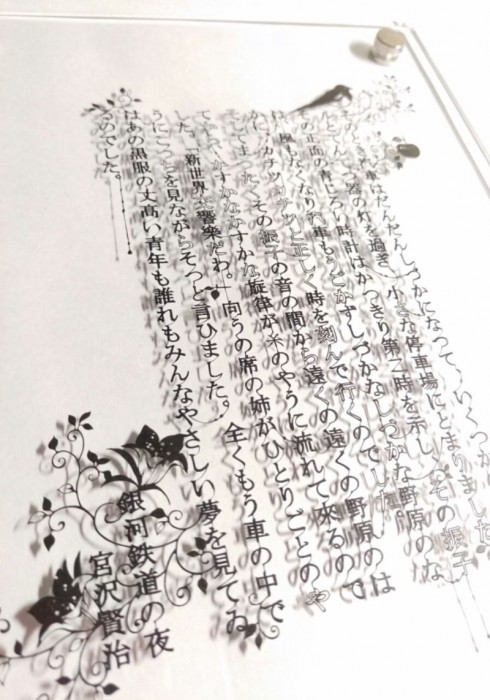 車はだんだんしづかになって、いくつか
器の灯を過ぎ、小さな停車場にとまりました。
の正面の青じろい時計はかっきり第二時を示し、その振子
風もなくなり汽車もうごかずしづかなしづかな野原のな
かに、カチッカチッと正しく時を刻んで行くのでした。
そしてまったくその振子の音の間から遠くの遠くの野原のは
てから、かすかなかすかな旋律が糸のやうに流れて來るので
した。「新世界交響楽だわ。」向うの席の姉がひとりごとのや
うにこっちを見ながらそっと言ひました。全くもう車の中で
はあの黒服の丈高い青年も誰れもみんなやさしい夢を見てゐ
るのでした。
銀河鉄道の夜
宮沢賢治